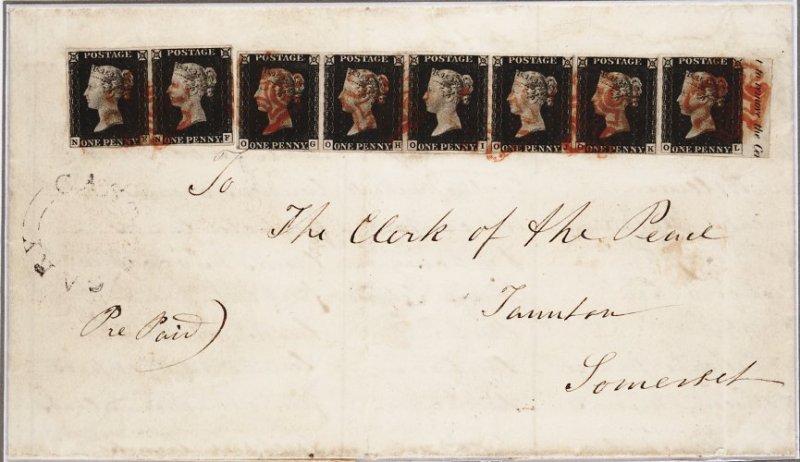 POSTAGE POSTAGE POSTAGE POSTAGE POSTAGE POSTAGE POSTAGE POSTAGE
N ONE PENNY N ONE PENNY F O ONE PENNY G O ONE PENNY H O ONE PENNY I O ONE PENNY O ONE PENNY K O ONE PENNY L
To
The Clerk of the Peace
Taunton
Somerset
Pre Paid
CARY